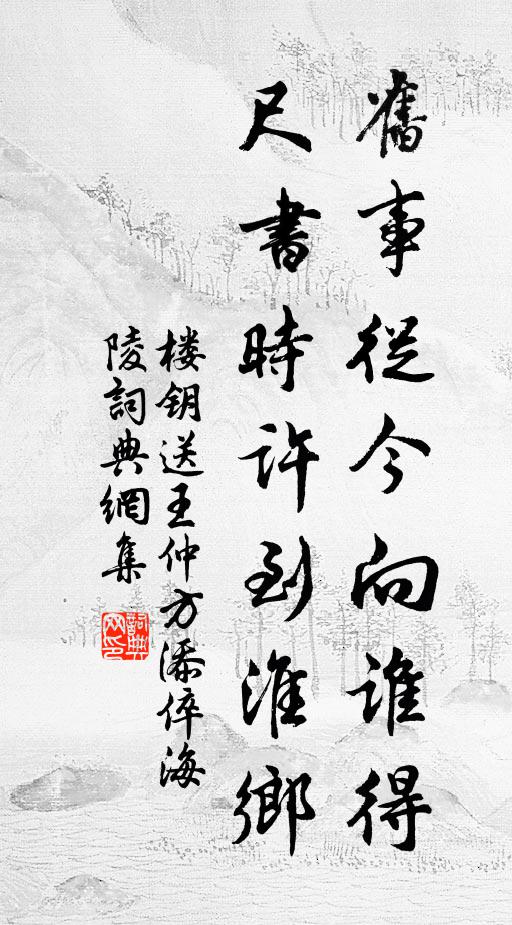 舊事從今向誰得
尺書時許到淮鄉
楼钥送王仲方添倅海
陵詞典網集
詞典
网印